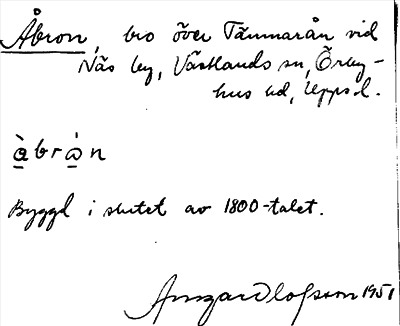 Åbron, bro över Tämnarån vid
Näs by, Västlands sn, Örby-
hus hd, Uppsl.
å̀brå̀n
Byggd i slutet av 1800-talet.
Ansgar Olofsson 1951